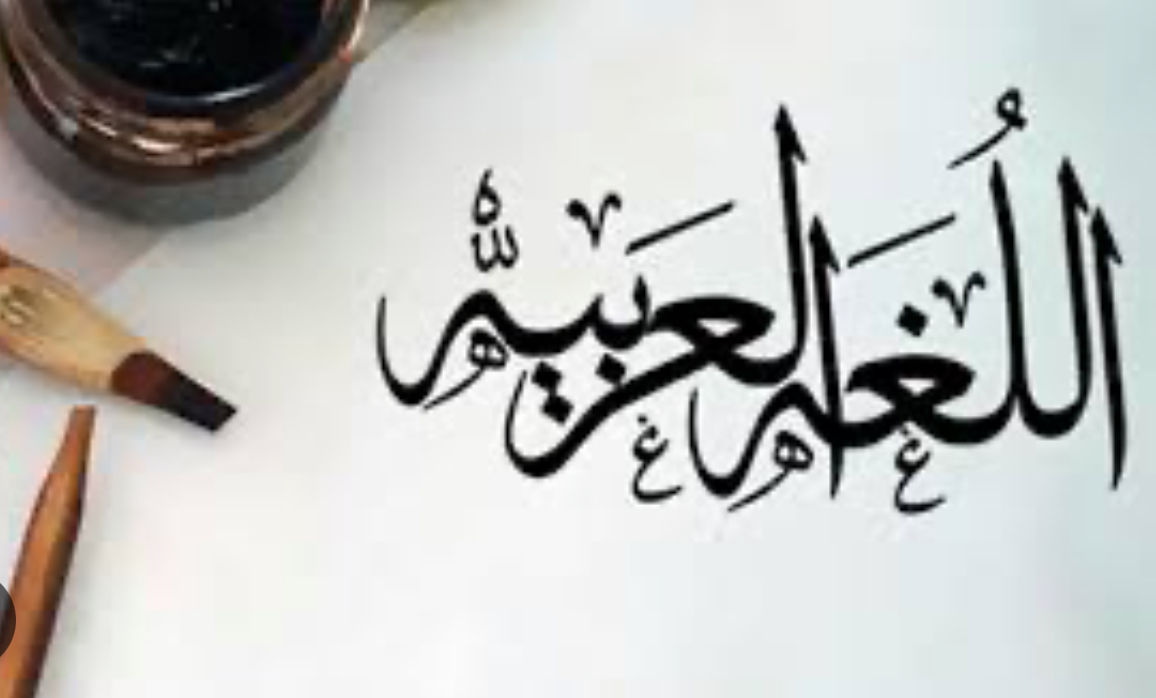 اللُغه العَربيّه